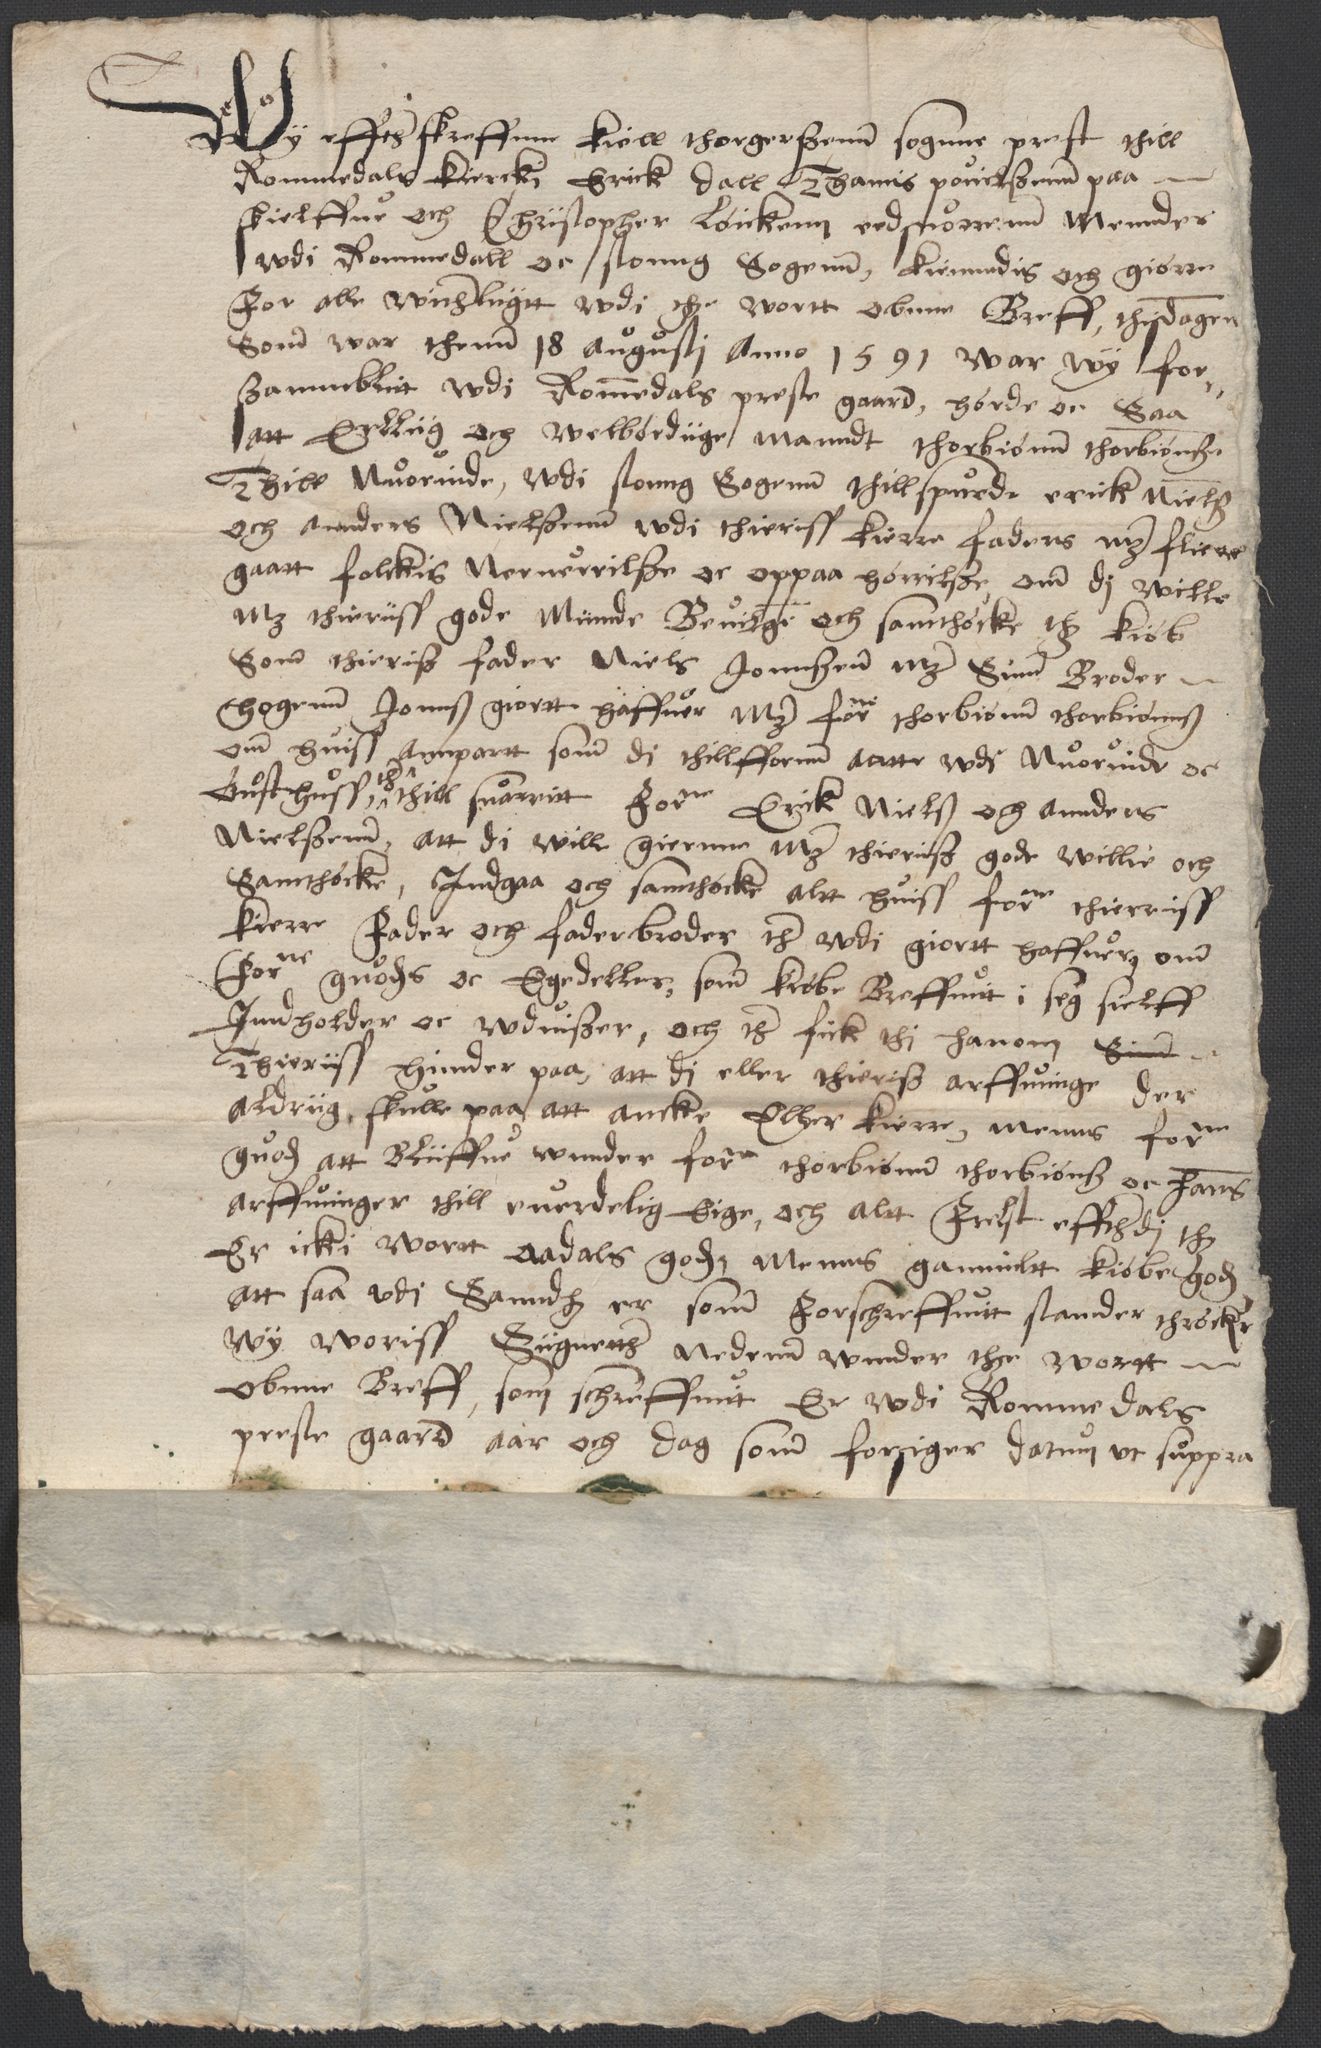 Wy effth skreffne Kiell thorgerssenn sogenne prest thill
Rommedals Kiercki Erick dall Thamis pouelssenn paa
skielffue och Christopher Löicken eedsuorenn Mennder
wdi Rommedall oc stanng Sogenn, kiennedis och giörre
for alle witherligtt wdi the wortt obnne Breff, thijdagen
Som war thenn 18 augustj Anno 1591 war wij for,,
samnblitt wdi Rommedals preste gaard, hörde oc Saa
att Erllig och welbördige manndt thorbiönn thorbiönsse
Thill Nuorinde, wdi stanng Sogenn thillspurde erick Nielss
och annders Nielssenn wdi thieriss kierre faders mz fliere
gaatt folckis Neruerrilsse oc oppaa hörrilsse, om dj wille
Mz thieriss gode Minde Beuilge och samthöcke thz kiöb
Som thieriss fader Niels Jonnssenn mz Sinn Broder
Hogenn Jonnss giortt haffuer Mz forne thorbiönn thorbiönnss
om huiss annpartt som dj thillfornn aatte wdi Nuorinde oc
Austhuss, th thill suarritt Forne Erick Nielss och annders
Nielssenn, att di will giernne mz thieriss gode willie och
Samthöcke, Indgaa och samthöcke altt huiss forne thierriss
kierre Fader och faderbroder th wdi giortt haffuer, om
Forne guods oc Egedeller, som kiöbe Breffuit i seg sielff
Inndholder oc wduisser, och th fick thj hanom Sinn
Thieriss hinnder paa, att dj eller thieriss arffuinge der
aldrig, skulle paa att ancke Eller kierre, menns forne
guodz att Bliffue wnnder forne thorbiönn thorbiönss oc hans
arffuinger thill euerdelig Eige, och altt Frelst effthj thz
Er icki wortt oadals godz, menns gammeltt kiöbe godz
att saa wdi Sanndhz er som Forschreffuitt stannder thröcker
wy woriss Signetth nedenn wnnder the wortt
obnne Breff, som schreffuit Er wdi Rommedals
preste gaard aar och dag som forsiger datum vt suppra